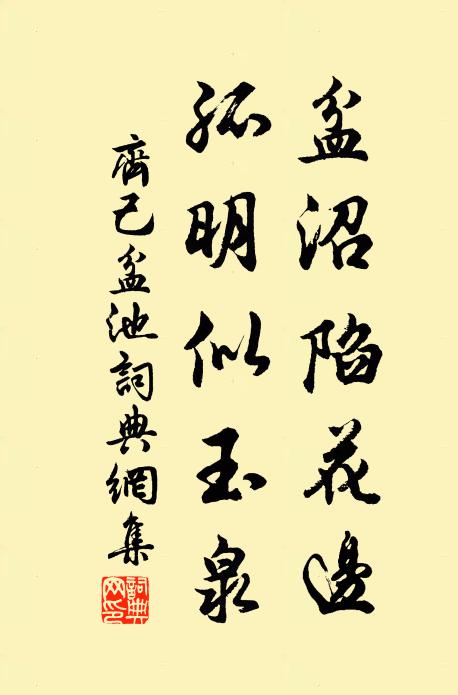 盆沼陷花邊
孤明似玉泉
齊己盆池詞典網集
詞典网印